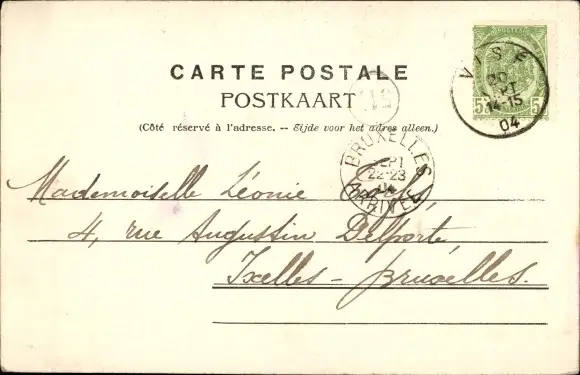 CARTE POSTALE
POSTKAART
(Côté réservé à l'adresse. -- Zijde voor het adres alleen.)
VISÉ
SEPT
14-15
04
5 5
BRUXELLES
SEPT
22-23
ARRIVÉE
Mademoiselle Léonie
4, rue Augustin Delporte,
Ixelles – Bruxelles.